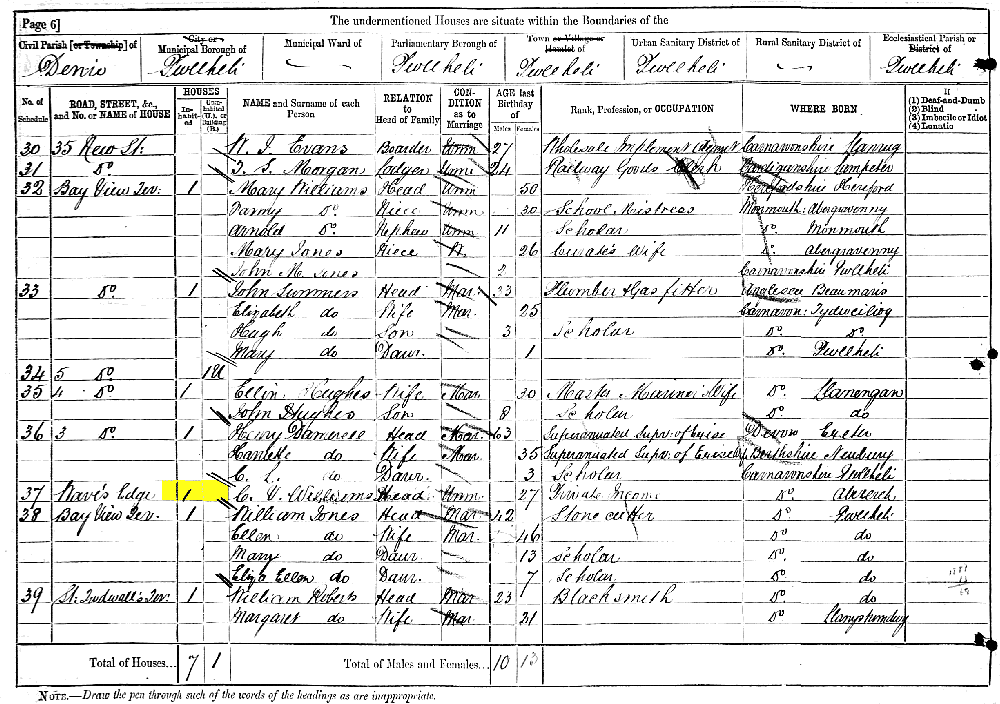 Page 6]
The undermentioned Houses are situate within the Boundaries of the
Civil Parish [or Township] of
City or Municipal Borough of
Municipal Ward of
Parliamentary Borough of
Town or Village or Hamlet of
Urban Sanitary District of
Rural Sanitary District of
Ecclesiastical Parish or District of
Denio Pwllheli Pwllheli Pwllheli Pwllheli Pwllheli
No. of Schedule
ROAD, STREET, &c., and No. or NAME of HOUSE
HOUSES
Inhabited
NAME and Surname of each Person
RELATION to Head of Family
CONDITION as to Marriage
AGE last Birthday of
Males Females
Rank, Profession, or OCCUPATION
WHERE BORN
If
(1) Deaf-and-Dumb
(2) Blind
(3) Imbecile or Idiot
(4) Lunatic
30 35 New St. Evans Boarder Unm 27 Wholesale Implement Agent Carnarvonshire Llanrug
31 Do. Morgan Lodger Unm 24 Railway Goods Clerk Cardiganshire Lampeter
32 Bay View Ter. 1 Mary Williams Head Unm 50 Herefordshire Hereford
Do. Niece Unm 30 School Mistress Monmouth: Abergavenny
Arnold Do. Nephew Unm 11 Scholar Do. Monmouth
Mary Jones Niece 26 Curate's Wife Do. Abergavenny
John M. Jones 2 Carnarvonshire Pwllheli
33 Do. 1 John Summers Head Mar. 33 Plumber & Gas fitter Anglesea Beaumaris
Elizabeth do Wife Mar. 25 Carnarvon:
Hugh do Son 3 Scholar Do. Do.
Mary do Daur. 1 Do. Pwllheli
34 5 Do. 1U
35 4 Do. 1 Ellin Hughes Wife Mar. 30 Master Mariner's Wife Do. Llanengan
John Hughes Son 8 Scholar Do. do
36 3 Do. 1 Henry Damerell Head Mar. 63 Superanuated Supv. of Exise Devon Exeter
do Wife Mar. 35 Superanuated Supv. of Exise Berkshire Newbury
C. L. do Daur. 3 Scholar Carnarvonshire Pwllheli
37 Wave's Edge 1 C. V. Williams Head Unm 27 Private Income Do. Abererch
38 Bay View Ter. 1 William Jones Head Mar. 42 Stone cutter Do. Pwllheli
Ellen do Wife Mar. 46 Do. do
Mary do Daur. 13 scholar Do. do
Eliza Ellen do Daur. 7 Scholar Do. do
39 St. Tudwall's Ter. 1 William Roberts Head Mar 23 Blacksmith Do. do
Margaret do Wife Mar 21 Do.
Total of Houses... 7 1
Total of Males and Females... 10 13
NOTE.—Draw the pen through such of the words of the headings as are inappropriate.